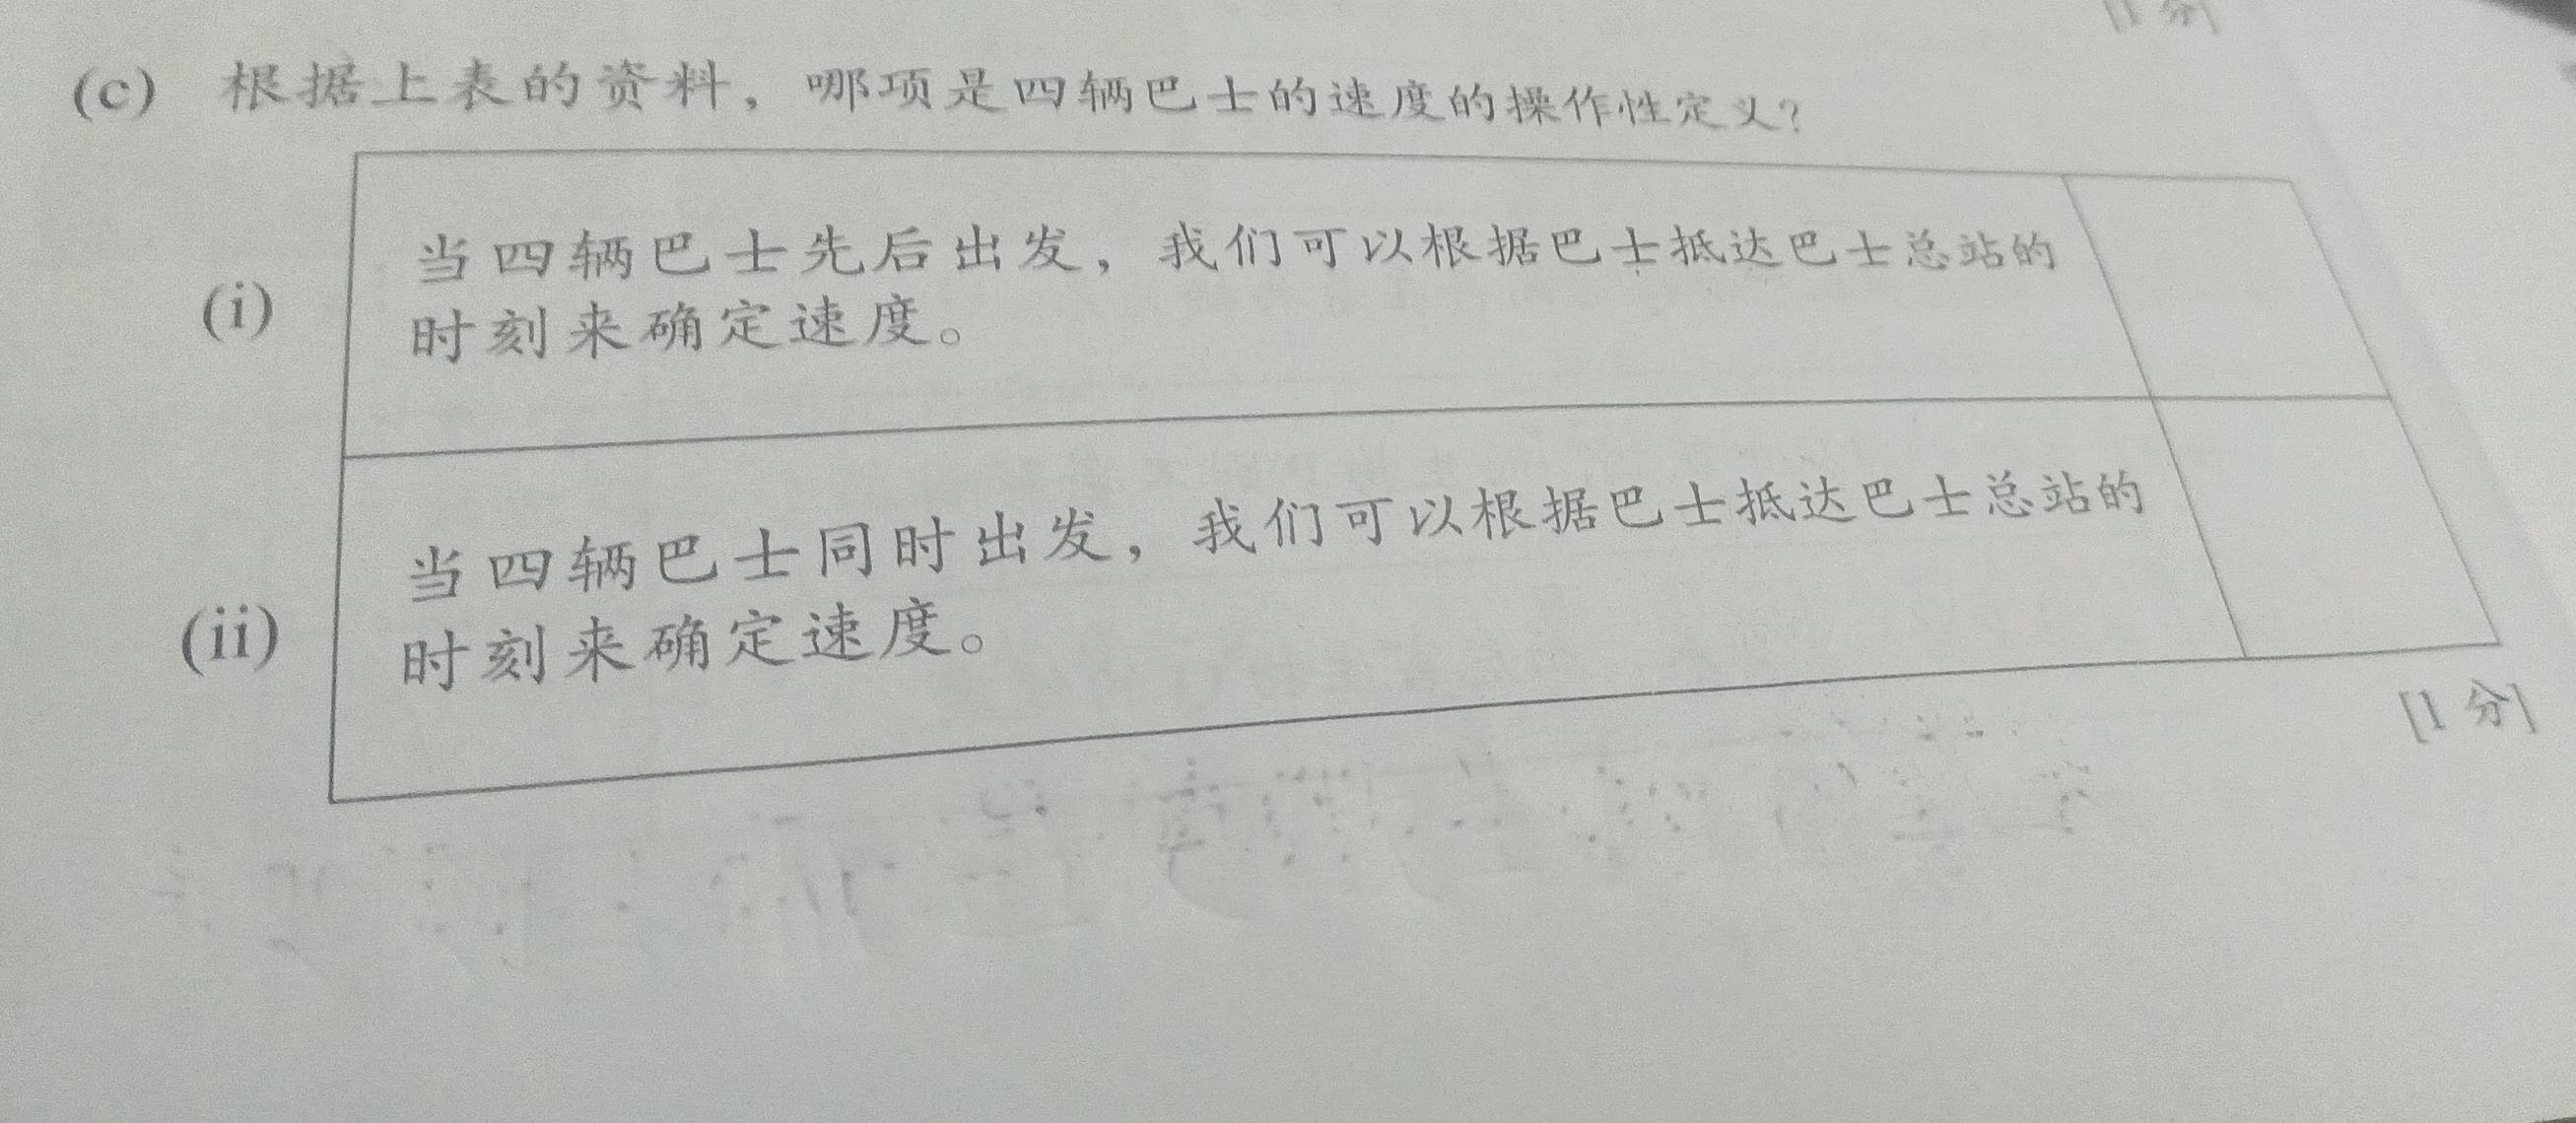 [1 分]
(c) 根据上表的资料，哪项是四辆巴士的速度的操作性定义？
(i)
当四辆巴士先后出发，我们可以根据巴士抵达巴士总站的
时刻来确定速度。
(ii)
当四辆巴士同时出发，我们可以根据巴士抵达巴士总站的
时刻来确定速度。
[1 分]